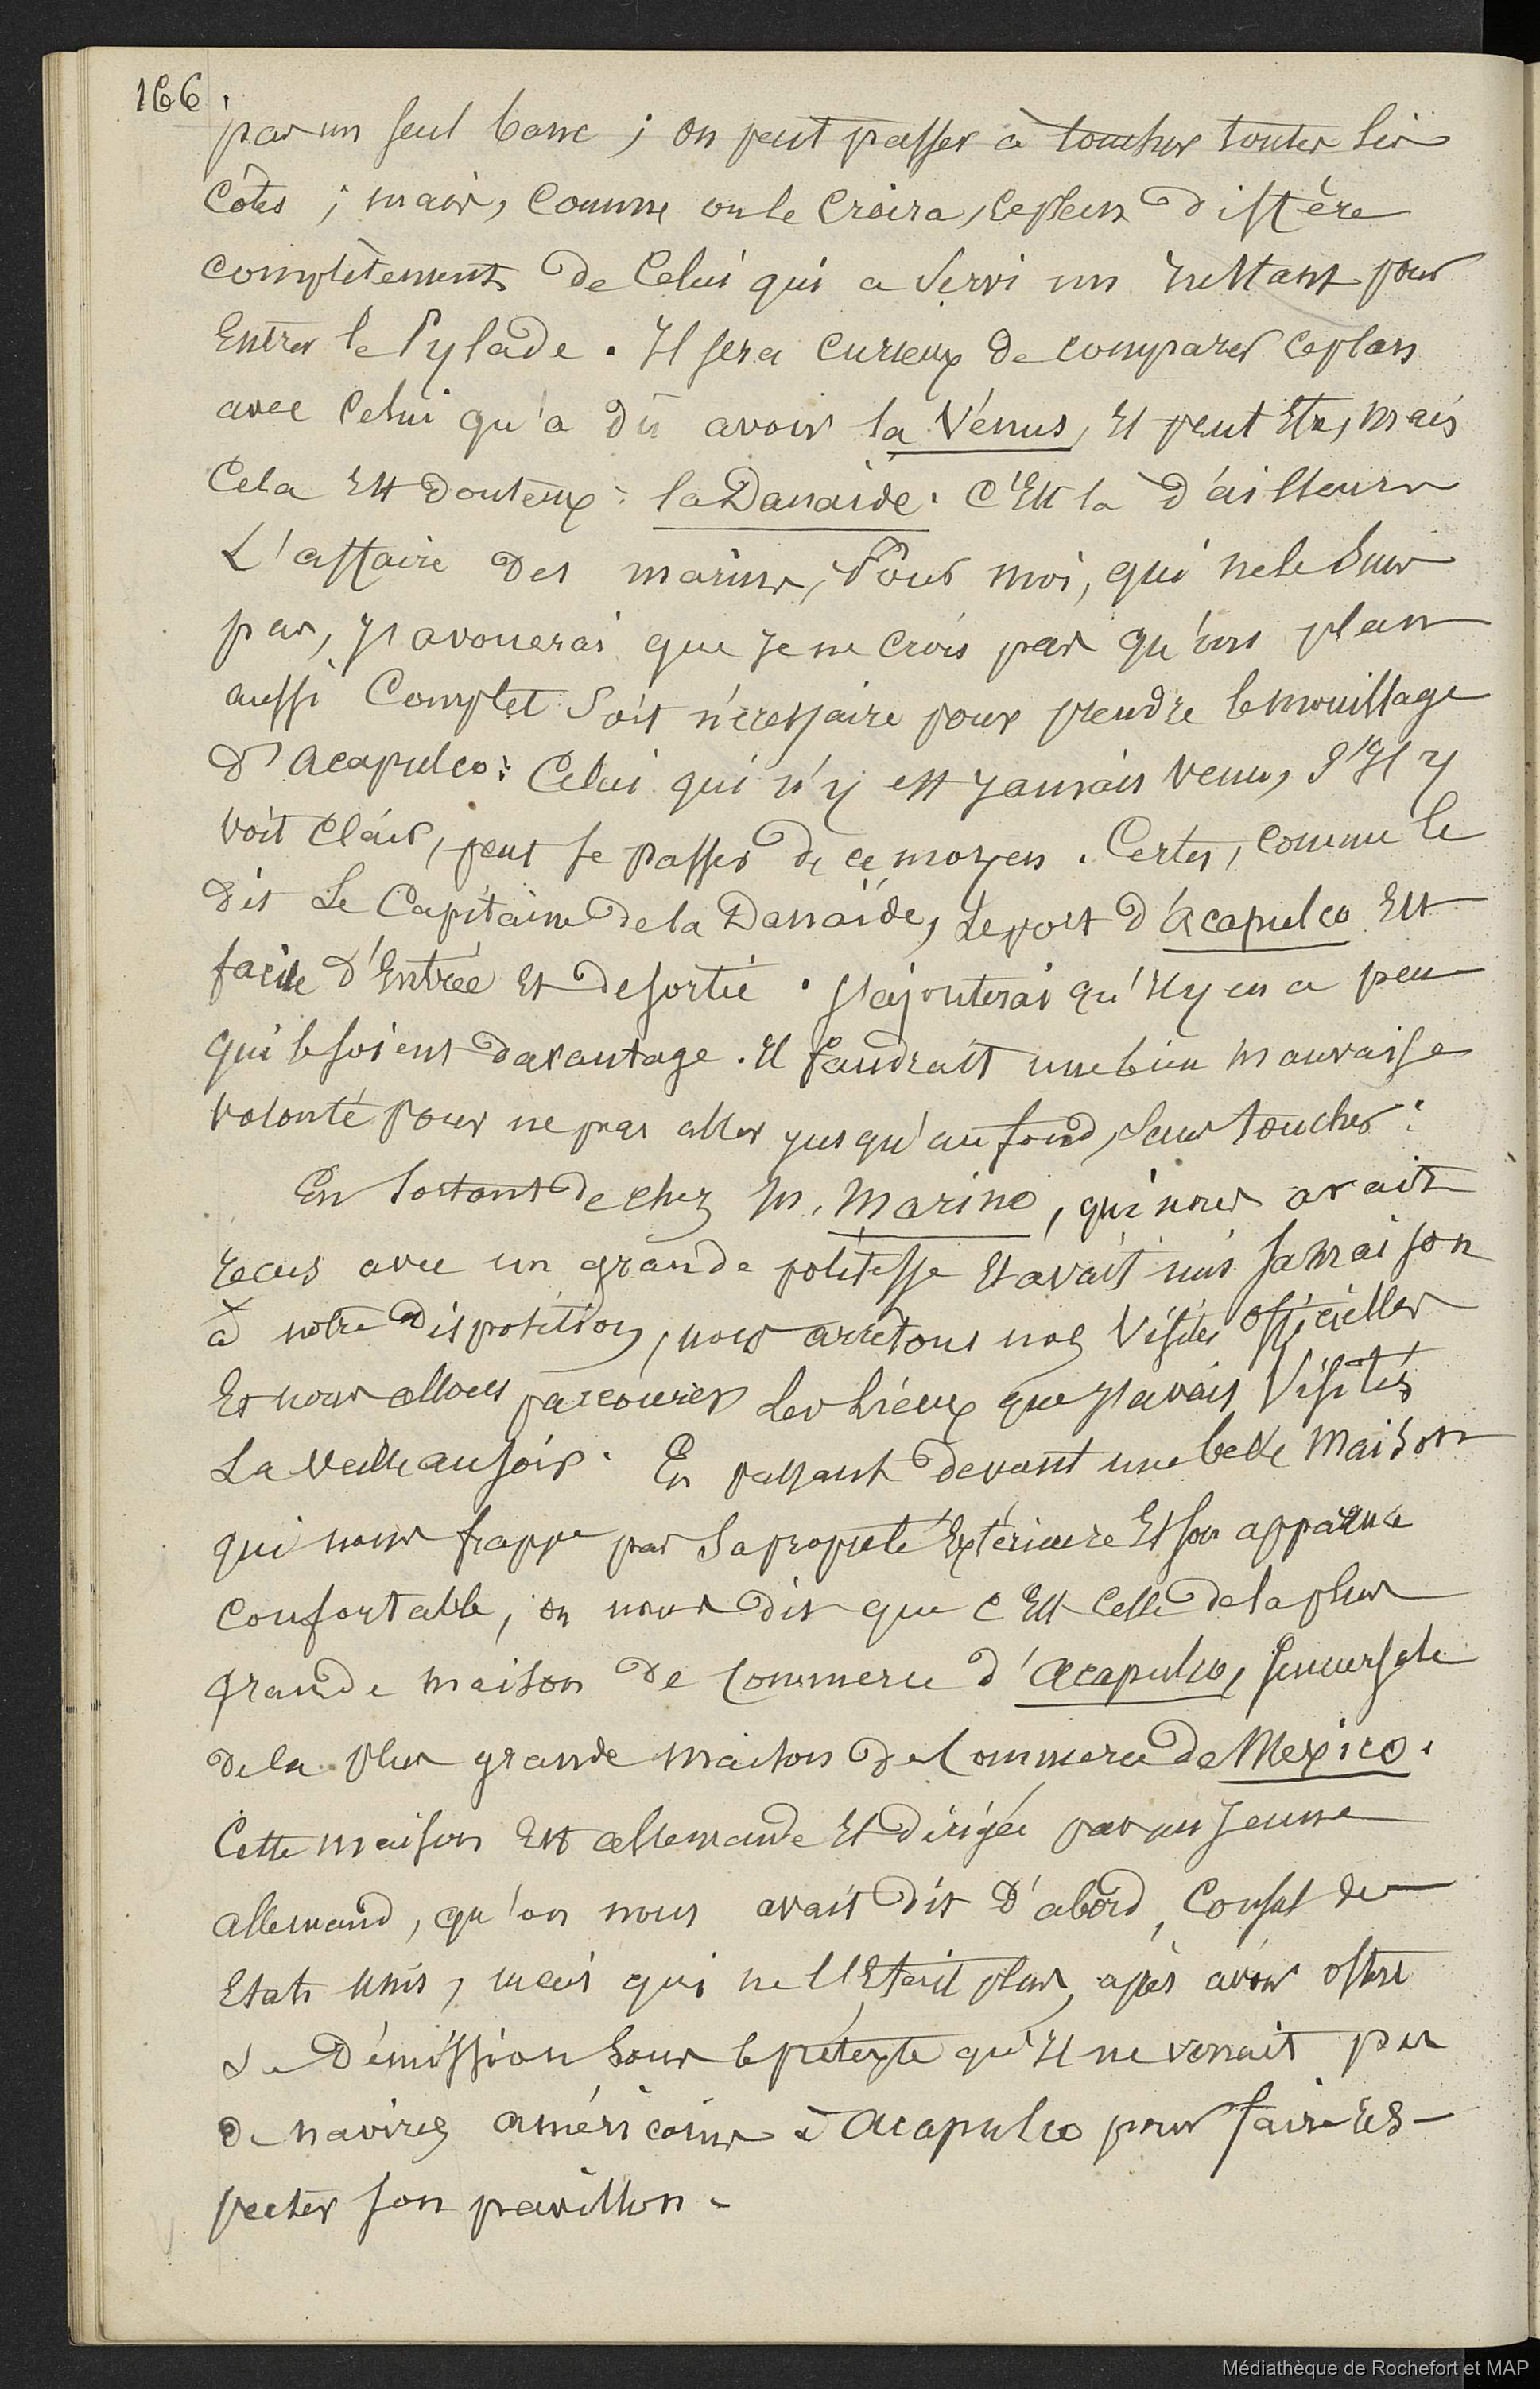 166.
par un seul banc ; on peut passer à toucher toutes les
côtes ; mais, comme on le croira, ce plan diffère
complètement de celui qui a servi un instant pour
entrer le Pylade. Il sera curieux de comparer ce plan
avec celui qu'a dû avoir la Vénus, et peut être, mais
cela est douteux : la Danaïde. C'est là d'ailleurs
L'affaire des marins, Pour moi, qui ne le suis
pas, j'avouerai que je ne crois pas qu'un plan
aussi complet soit nécessaire pour prendre le mouillage
d'Acapulco : Celui qui n'y est jamais venu, s'il y
voit clair, peut se passer de ce moyen. Certes, comme le
dit Le Capitaine de la Danaïde, le port d'Acapulco est
facile d'entrée et de sortie. J'ajouterai qu'il y en a peu
qui le soient davantage. Il faudrait une bien mauvaise
volonté pour ne pas aller jusqu'au fond, sans toucher.
En sortant de chez M. Marino, qui nous avait
recus avec un grande politesse et avait mis sa maison
à notre disposition, nous arrêtons nos visites officielles
et nous allons parcourir les lieux que j'avais visités
La veille au soir. En passant devant une belle maison
qui nous frappe par sa propreté extérieure et son apparence
confortable, on nous dit que c'est celle de la plus
grande maison de commerce d'Acapulco, succursale
de la plus grande maison de commerce de Mexico.
Cette maison est allemande et dirigée par un jeune
allemand, qu'on nous avait dit d'abord, Consul des
Etats Unis, mais qui ne l'était plus, après avoir offert
sa démission sous le prétexte qu'il ne venait pas
de navires américains à Acapulco pour faire res-
pecter son pavillon.
Médiathèque de Rochefort et MAP